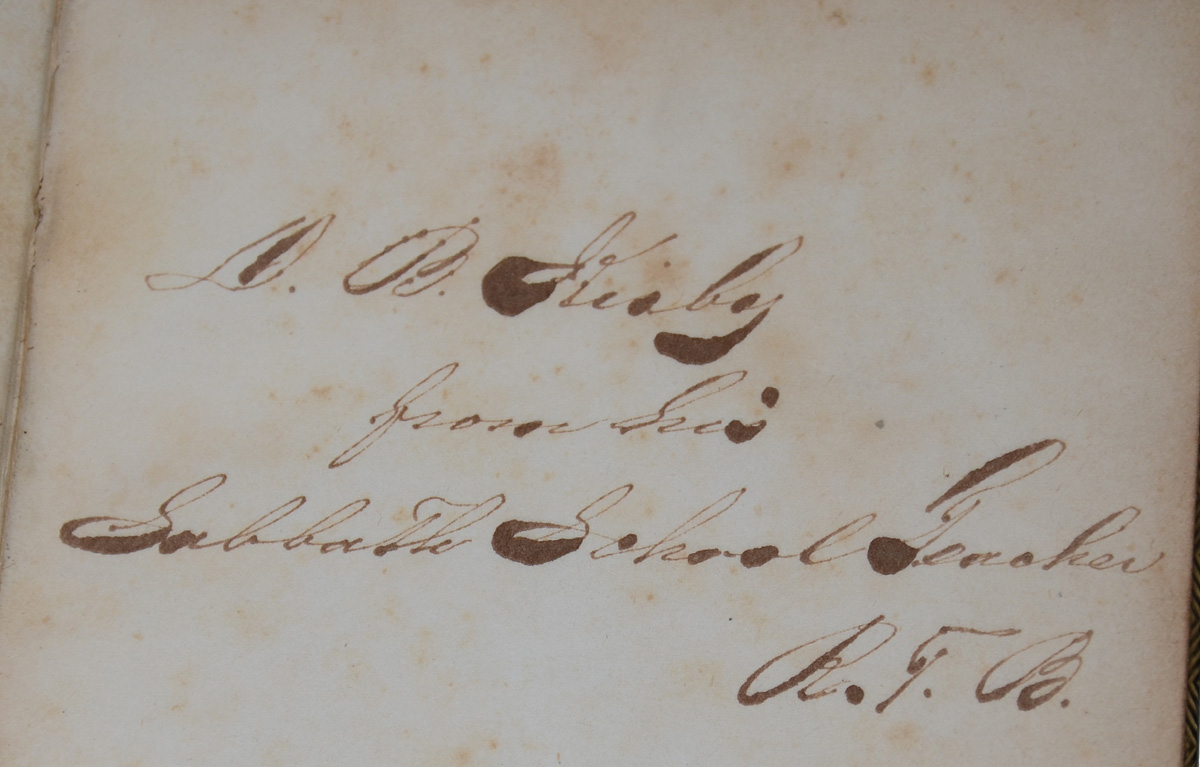 D. B. Kirby
from his
Sabbath School Teacher
R. T. B.